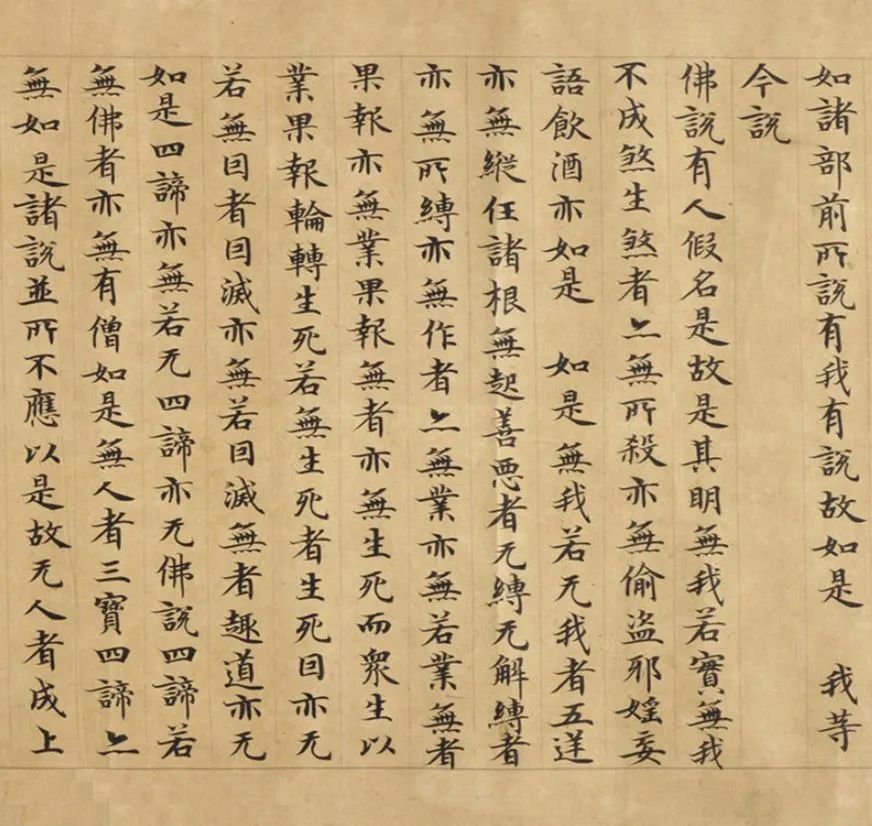 如諸部前所說有我有說故如是　我等
今說
佛說有人假名是故是其明無我若實無我
不成煞生煞者亦無所殺亦無偷盜邪婬妄
語飲酒亦如是　如是無我若无我者五逆
亦無縱任諸根無起善惡者无縛无解縛者
亦無所縛亦無作者亦無業亦無若業無者
果報亦無業果報無者亦無生死而衆生以
業果報輪轉生死若無生死者生死因亦无
若無因者因滅亦無若因滅無者趣道亦无
如是四諦亦無若无四諦亦无佛說四諦若
無佛者亦無有僧如是無人者三寶四諦亦
無如是諸說並所不應以是故无人者成上